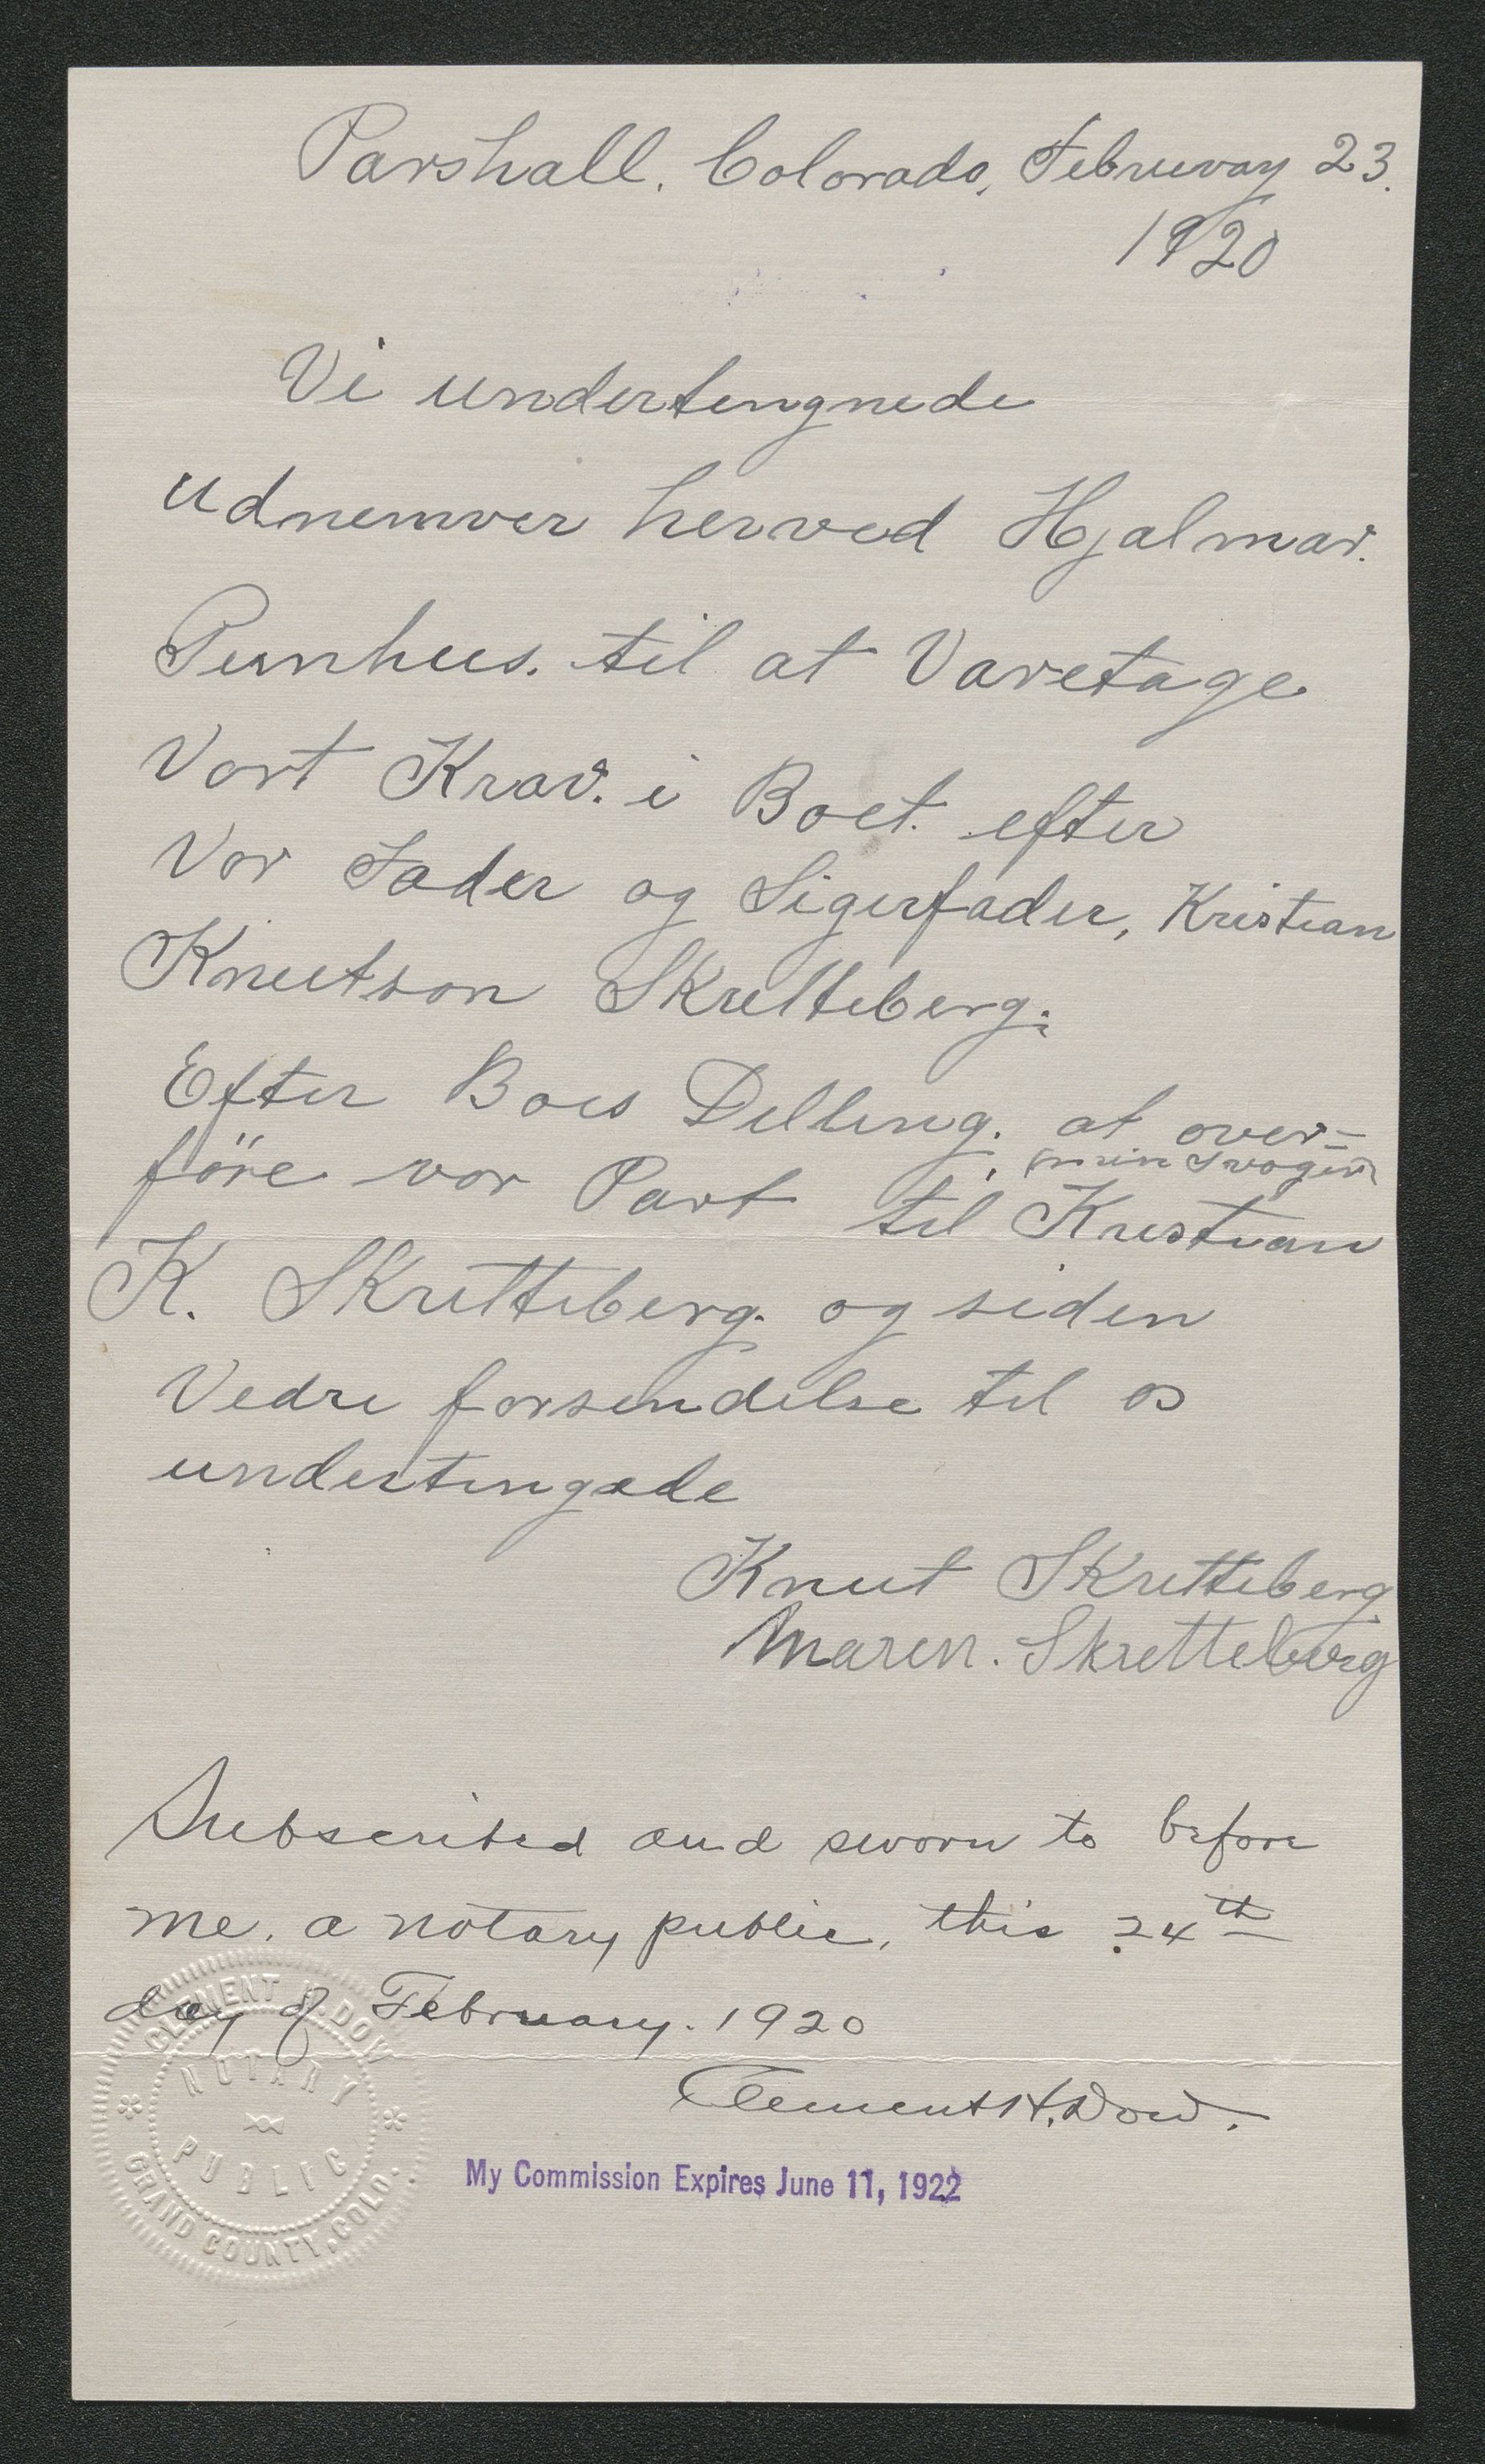 Parshall. Colorado, Februray 23.
1920
Vi undertengnede
udnemver herved Hjalmar.
Punhus. til at Varetage
Vort Krav. i Boet. efter
Vor Fader og Sigerfader, Kristian
Knutson Skretteberg.
Efter Boes Delling. at over-
(min Svoger)
före vor Part til Kristian
K. Skretteberg. og siden
Vedre forsendelse til os
undertingede
Knut Skretteberg
Maren. Skretteberg
Subscribed and sworn to before
me, a notary public, this 24th
day of February. 1920
Clement H. Dow.
My Commission Expires June 11, 1922
CLEMENT H. DOW
NOTARY
PUBLIC
GRAND COUNTY, COLO.